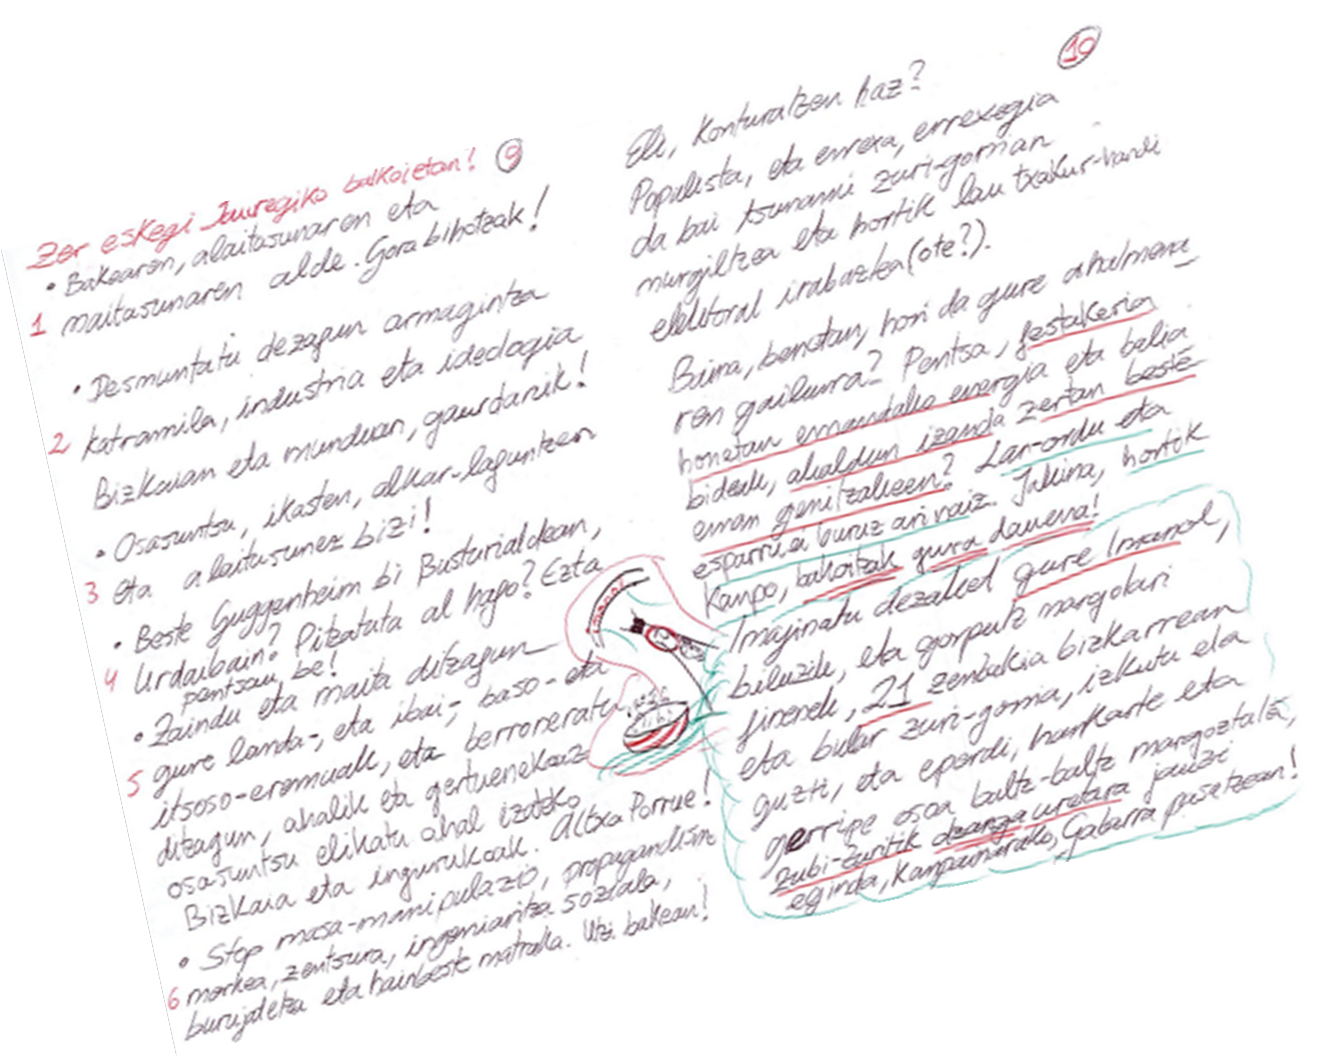 9
Zer eskegi Jauregiko balkoietan!
• Bakearen, alaitasunaren eta
1 maitasunaren alde. Gora bihotzak!
• Desmuntatu dezagun armagintza
2 katramila, industria eta ideologia
Bizkaian eta munduan, gaurdanik!
• Osasuntsu, ikasten, alkar-laguntzen
3 eta alaitasunez bizi!
• Beste Guggenheim bi Busturialdean,
4 Urdaibain? Pitzatuta al hago? Ezta
pentsau be!
• Zaindu eta maita ditzagun
5 gure landa-, eta ibai-, baso- eta
itsoso-eremuak, eta berroneratu
ditzagun, ahalik eta gertuenekoaz
osasuntsu elikatu ahal izateko
Bizkaia eta ingurukoak. Altxa Porrue!
• Stop masa-manipulazio, propagandism
6 merkea, zentsura, ingeniaritza soziala,
burujabetza eta hainbeste matraka. Utzi bakean!
10
Ele, konturatzen haz?
Populista, eta erreza, errezegia
da bai tsunami zuri-gorrian
murgiltzea eta hortik lau txakur-handi
elektoral irabaztea (ote?).
Baina, benetan, hori da gure ahalmena
ren gailurra? Pentsa, festakeria
honetan emandako energia eta balia
bideak, ahaldun izanda zertan beste
eman genitzakeen? Lan-ordu eta
esparrua buruz ari naiz. Jakina, hortik
kanpo, bakoitzak gura dauena!
Imajinatu dezaket gure Imanol,
biluzik, eta gorputz margolari
finenek, 21 zenbakia bizkarrean
eta bular zuri-gorria, izkutu eta
guzti, eta epordi, hankarte eta
gerripe osoa baltz-baltz margoztuta,
zubi-zuritik dzanga uretara jauzi
eginda, kanpainarako, Gabarra pasatzean!